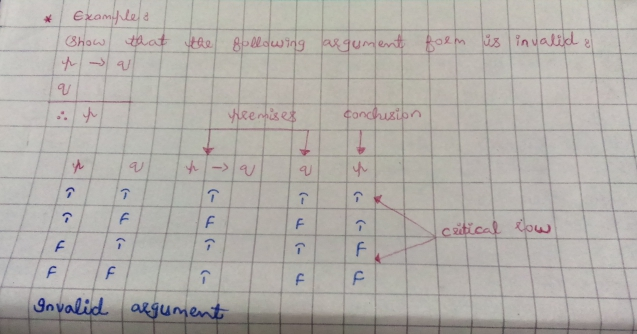 * Example:
Show that the following argument form is invalid:
p → q
q
∴ p
premises conclusion
p q p → q q p
T T T T T
T F F F T
F T T T F
F F T F F
critical row
Invalid argument